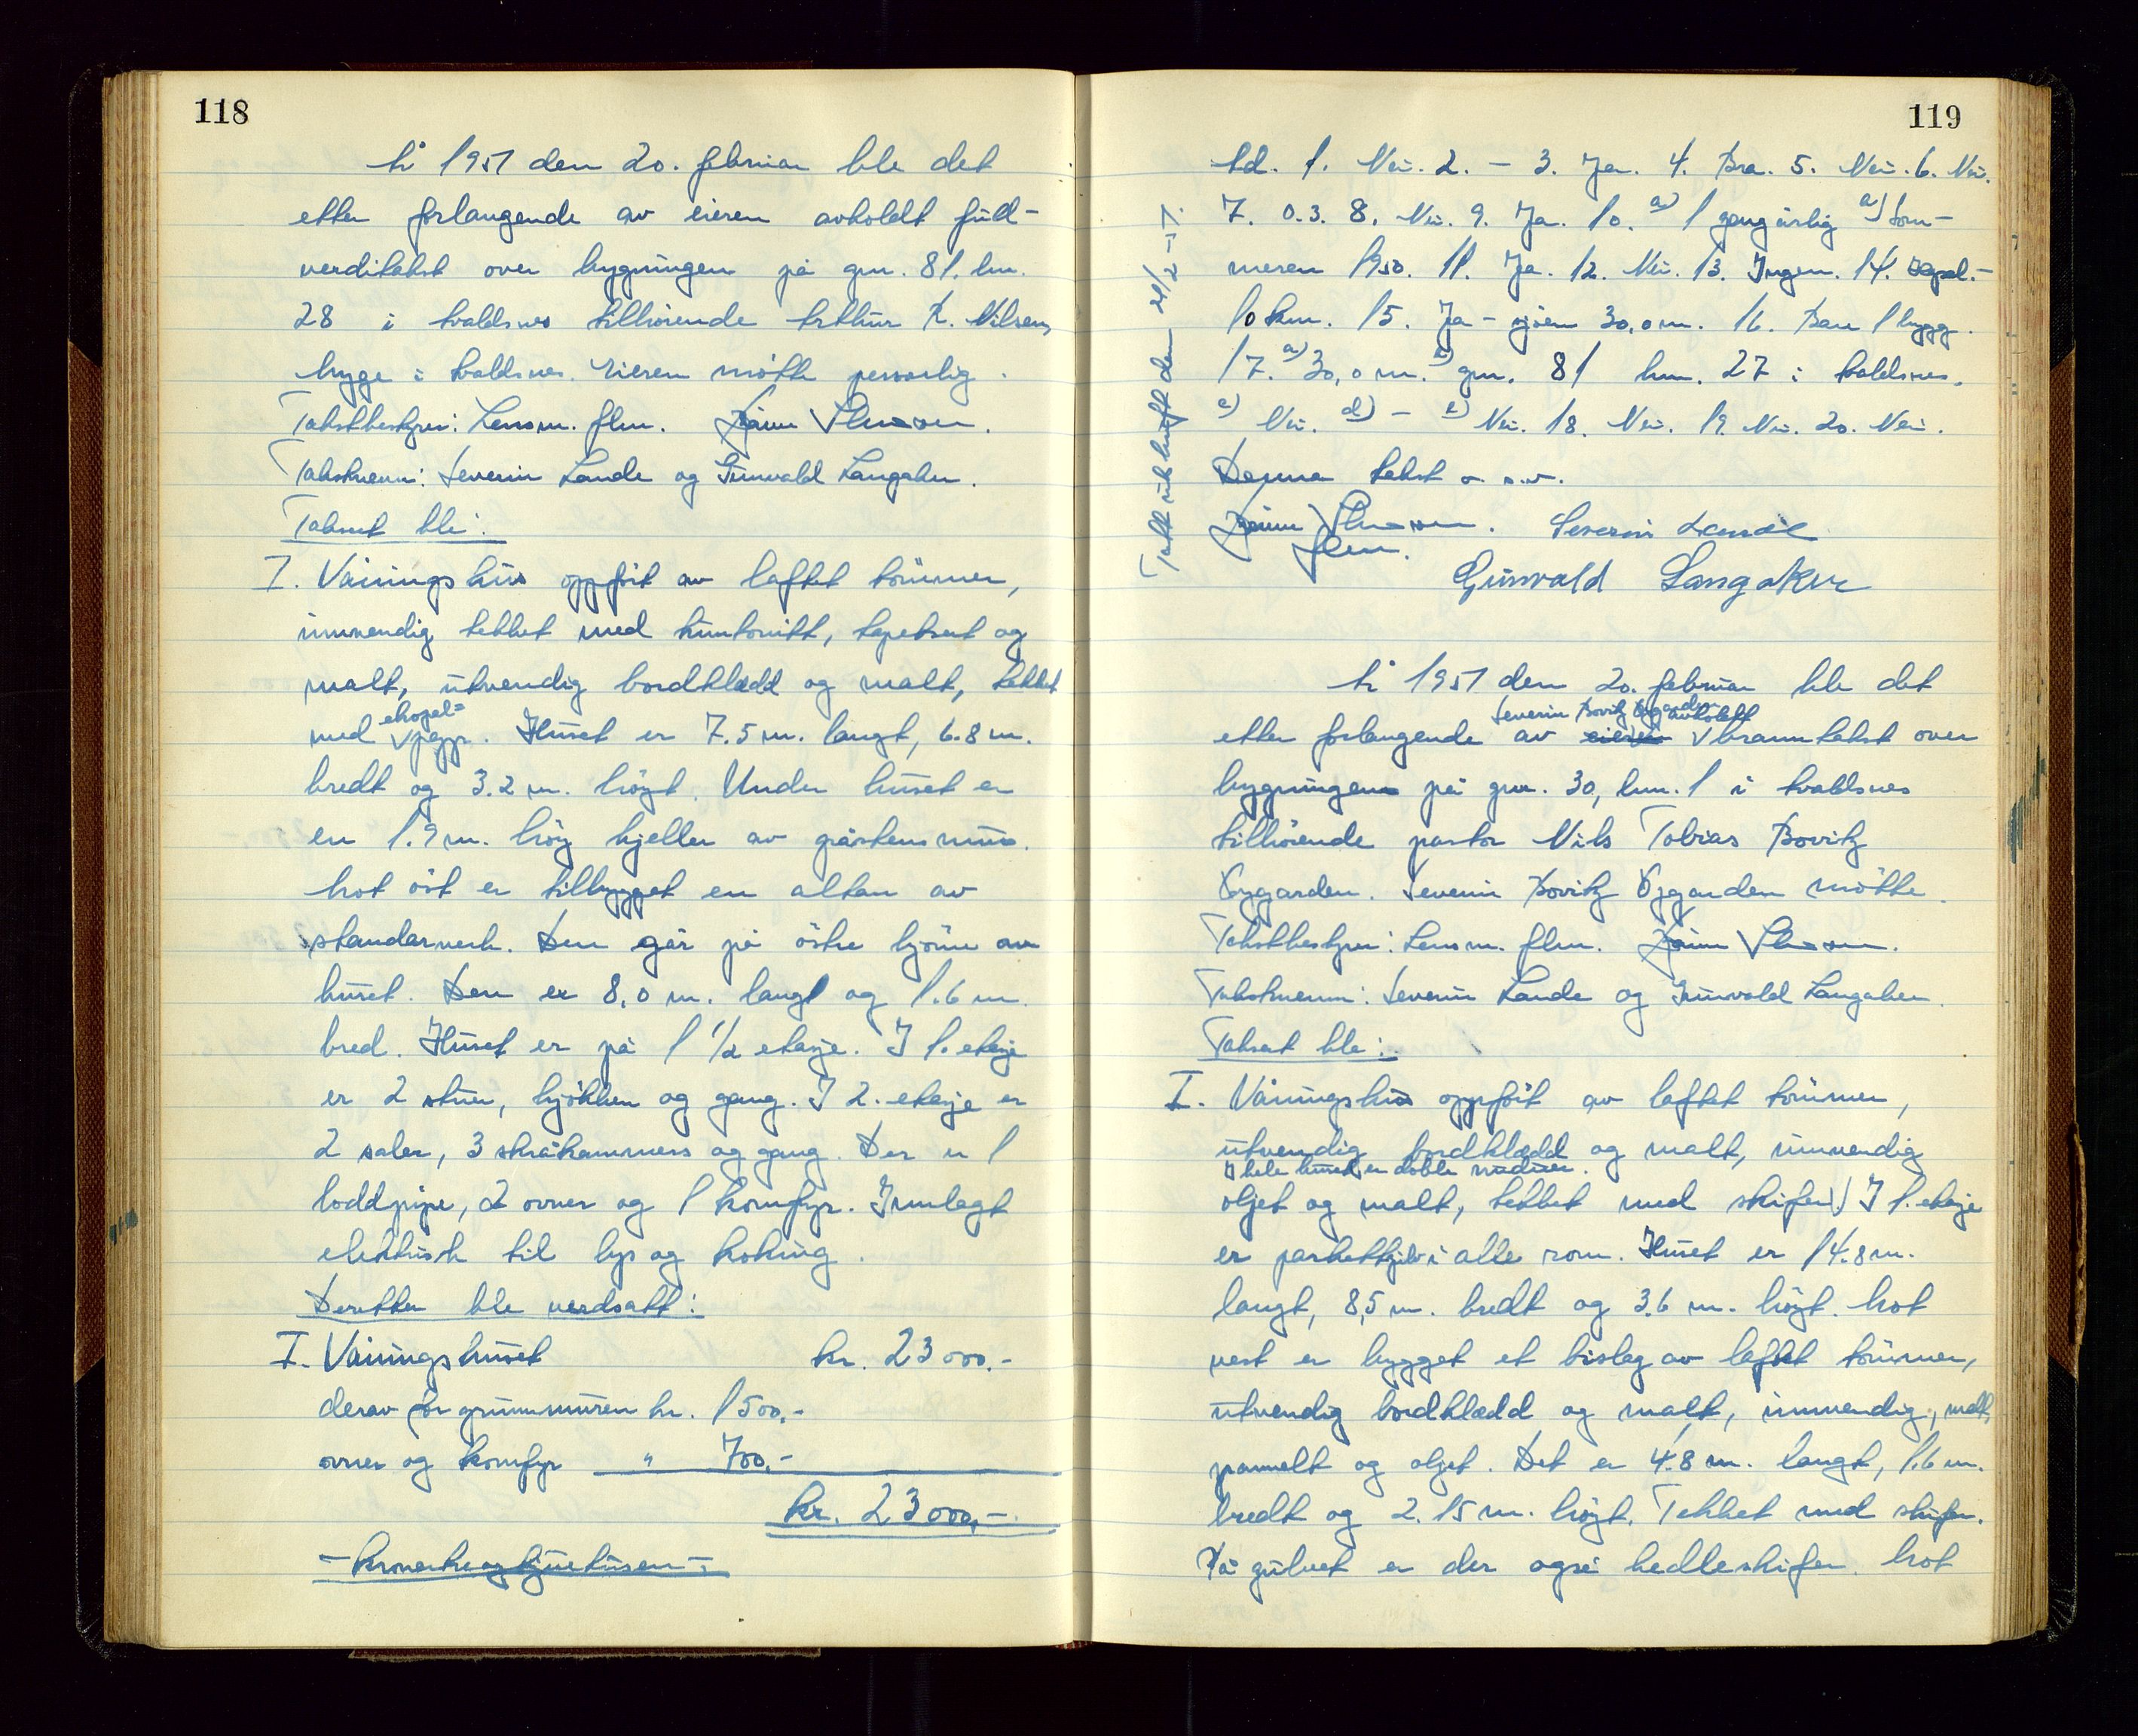 118
År 1951 den 20. februar ble det
etter forlangende av eieren avholdt full-
verditakst over bygningen på gnr. 81. bnr.
28 i Avaldsnes tilhørende Arthur K. Nilsen,
bygge i Avaldsnes. Eieren møtte personlig.
Takstbestyrer: Lensm. flm.
Takstmenn: Severin Lande og Gunvald Langaker.
Taksert ble:
I. Våningshus oppført av laftet tømmer,
innvendig tekket med huntonitt, tapetsert og
malt, utvendig bordklædd og malt, tekket
ekspol=
med papp. Huset er 7.5 m. langt, 6.8 m.
bredt og 3.2 m. høgt. Under huset er
en 1.9 m. høg kjeller av gråstens mur.
Mot øst er tilbygget en altan av
standarverk. Den går på østre hjørne av
huset. Den er 8,0 m. langt og 1.6 m.
bred. Huset er på 1 1/2 etasje. I 1. etasje
er 2 stuer, kjøkken og gang. I 2. etasje er
2 saler, 3 skråkammers og gang. Der er 1
loddpipe, 2 ovner og 1 komfyr. Innlagt
elektrisk til lys og koking.
Deretter ble verdsatt:
I. Våningshuset kr. 23000.-
derav for grunnmuren kr. 1500,-
ovner og komfyr " 700.-
kr. 23000,-
119
Ad. 1. Nei. 2. - 3. Ja. 4. Bra. 5. Nei. 6. Nei.
7. 0.3. 8. Nei. 9. Ja. 10. a) 1 gang årlig a) som-
meren 1950. 11. Ja. 12. Nei. 13. Ingen. 14. Kopol.-
10 km. 15. Ja - sjøen 30,0 m. 16. Bare 1 bygg.
17. a) 30,0 m. b) gnr. 81 bnr. 27 i Avaldsnes.
c) Nei. d) - e) Nei. 18. Nei. 19. Nei. 20. Nei.
Denne takst o.s.v.
Severin Lande
flm.
Gunvald Langaker
Takst utskrift den 21/2-51.
År 1951 den 20. februar ble det
Severin Bovitz Øygarden avholdt
etter forlangende av eieren branntakst over
bygningene på gnr. 30, bnr. 1 i Avaldsnes
tilhørende pastor Nils Tobias Bovitz
Øygarden. Severin Bovitz Øygarden møtte.
Takstbestyrer: Lensm. flm.
Takstmenn: Severin Lande og Gunvald Langaker.
Taksert ble:
I. Våningshus oppført av laftet tømmer,
utvendig bordklædd og malt, innvendig
I hele huset er doble vinduer.
oljet og malt, tekket med skifer. I 1. etasje
er parkettgulv i alle rom. Huset er 14.8 m.
langt, 8,5 m. bredt og 3.6 m. høgt. Mot
vest er bygget et bislag av laftet tømmer,
utvendig bordklædd og malt, innvendig, malt,
pannelt og oljet. Det er 4.8 m. langt, 1.6 m.
bredt og 2.15 m. høgt. Tekket med skifer.
På gulvet er der også helleskifer. Mot